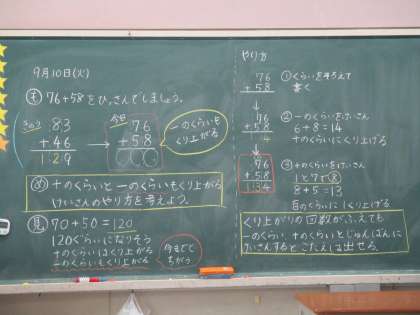 9月10日(火)
も 76+58をひっさんでしましょう。
きのう 83
+46
129
今日 76
+58
一のくらいも
くり上がる
め 十のくらいと一のくらいもくり上がる
けいさんのやり方を考えよう。
見 70+50=120
120ぐらいになりそう
十のくらいはくり上がる
一のくらいもくり上がる
今までと
ちがう
やり方
76
+58
①くらいをそろえて
書く
76
+58
4
②一のくらいをけいさん
6+8=14
十のくらいにくり上げる
76
+58
134
③十のくらいをけいさん
1と7で8
8+5=13
百のくらいに1くり上げる
くり上がりの回数がふえても
一のくらい、十のくらいとじゅんばんに
けいさんするとこたえは出せる。